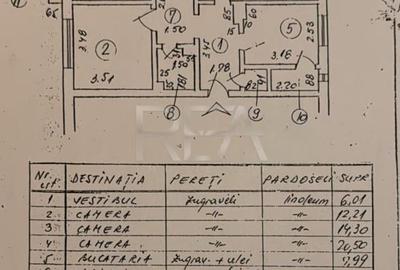 65
7
1.50
85
60
15
5
2.53
3.48
2
3.45
1
3.16
3.51
1.50
25
1.98
2.20
88
8
9
10
REA
Nr. crt. DESTINAȚIA PEREȚI PARDOSELI SUPR
1 VESTIBUL zugraveli linoleum 6,01
2 CAMERA -"- -"- 12,21
3 CAMERA -"- -"- 14,30
4 CAMERA -"- -"- 20,50
5 BUCATARIA zugrav. + ulei -"- 7,99